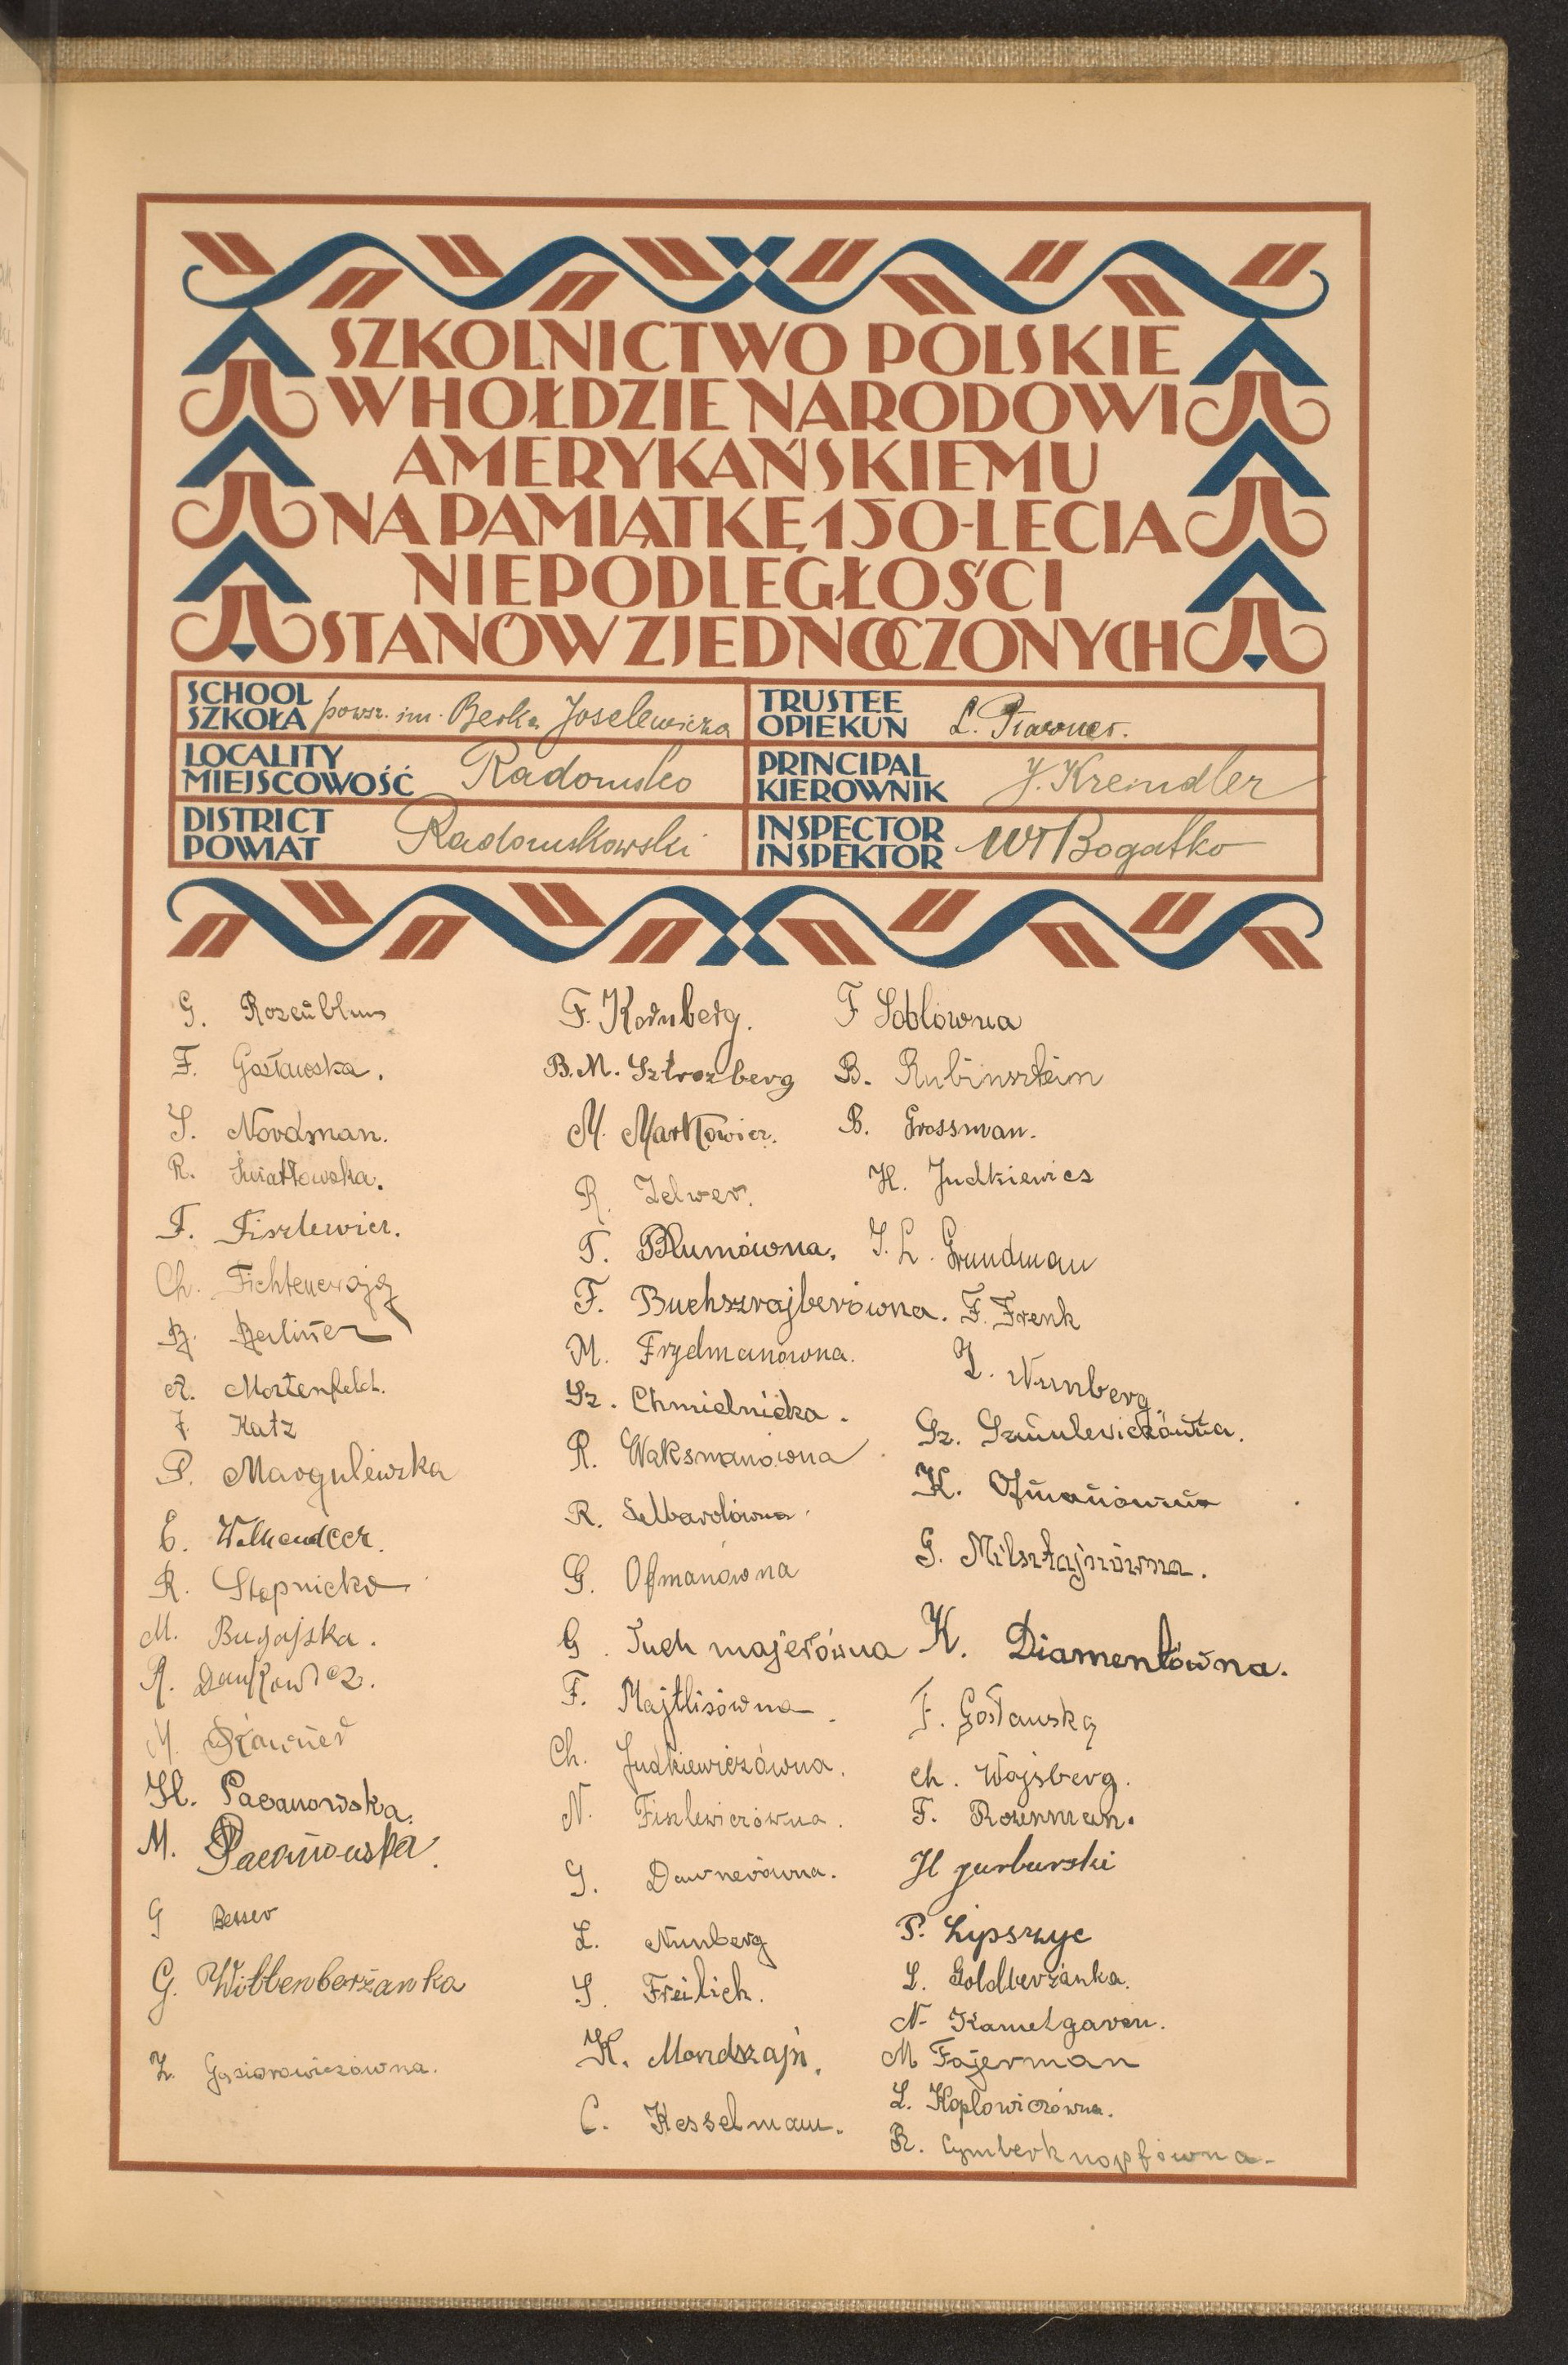 SZKOLNICTWO POLSKIE
W HOŁDZIE NARODOWI
AMERYKAŃSKIEMU
NA PAMIĄTKĘ 150-LECIA
NIEPODLEGŁOŚCI
STANÓW ZJEDNOCZONYCH
SCHOOL
SZKOŁA powsz. im. Berka Joselewicza
TRUSTEE
OPIEKUN L.
LOCALITY
MIEJSCOWOŚĆ Radomsko
PRINCIPAL
KIEROWNIK J. Kreindler
DISTRICT
POWIAT Radomskowski
INSPECTOR
INSPEKTOR Wł Bogatko
G. Rozenblum
F. Gosławska.
S. Nordman.
R. Światłowska.
F. Fiszlewicz.
Ch.
B. Berliner
R. Mortenfeld.
J. Katz
P. Margulewska
E.
R. Stopnicka
M. Bugajska.
R. Dankowicz.
M.
H. Pacanowska.
M. Pacanowska.
G Besser
G. Wittenberżanka
Z. Gąsiorowiczówna.
F. Kornberg.
B. M. Sztrozberg
M. Markowicz.
R. Zelwer.
T. Blumówna.
F. Buchszrajberówna.
M. Frydmanówna.
Sz. Chmielnicka.
R. Waksmanówna
R.
G. Ofmanówna
G. Tuchmajerówna
F. Majtlisówna
Ch. Judkiewiczówna.
N. Fiszlewiczówna.
G. Dawnerówna.
L. Nunberg
S. Freilich.
K. Mondszajn.
C. Kesselman.
F Soblówna
B. Rubinsztein
B. Grossman.
H. Judkiewicz
J. L. Grundman
F. Frenk
Z. Nunberg.
Sz. Szmulewiczówna.
K. Ofmanówna
G. Milsztajnówna.
K. Diamentówna.
F. Gosławska
Ch. Wajsberg.
F. Rozenman.
H Jurburski
P. Lipszyc
L. Goldberżanka.
N. Kamelgaren.
M Fajerman
L. Koplowiczówna.
R. Cymberknopfówna.